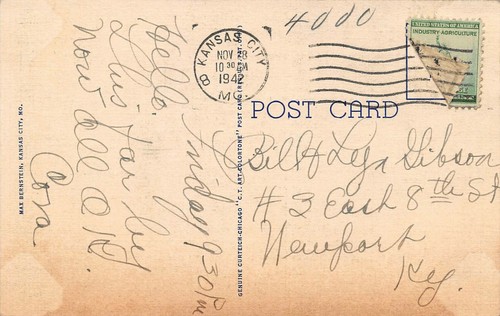 Hello,
this far by
now all O.K.
Cora
Friday 9:30 Pm
MAX BERNSTEIN, KANSAS CITY, MO.
GENUINE CURTEICH-CHICAGO "C.T. ART-COLORTONE" POST CARD (REG. U.S. PAT. OFF.)
4000
KANSAS CITY
8
NOV
10 30 PM
1942
MO.
UNITED STATES OF AMERICA
INDUSTRY-AGRICULTURE
POST CARD
Bill & Lyn Gibson
#3 East 8th St
Newport
Ky.